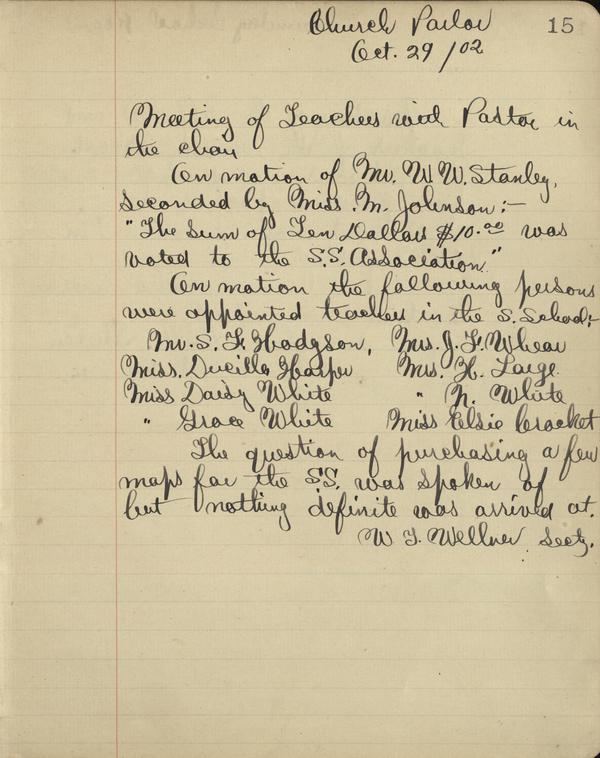 Church Parlor 15
Oct. 29/02
Meeting of Teachers with Pastor in
the chair
On motion of Mr. W. W. Stanley,
seconded by Miss. M. Johnson:-
"The sum of Ten Dollars $10.00 was
voted to the S.S. Association."
On motion the following persons
were appointed teachers in the S. School:-
Mr. S. F. Hodgson, Mrs. J. F. Whear
Miss. Lucilla Harper Mrs. H. Large
Miss Daisy White " N. White
" Grace White Miss Elsie Crocket
The question of purchasing a few
maps for the SS. was spoken of
but nothing definite was arrived at.
W. T. Wellner Secty.